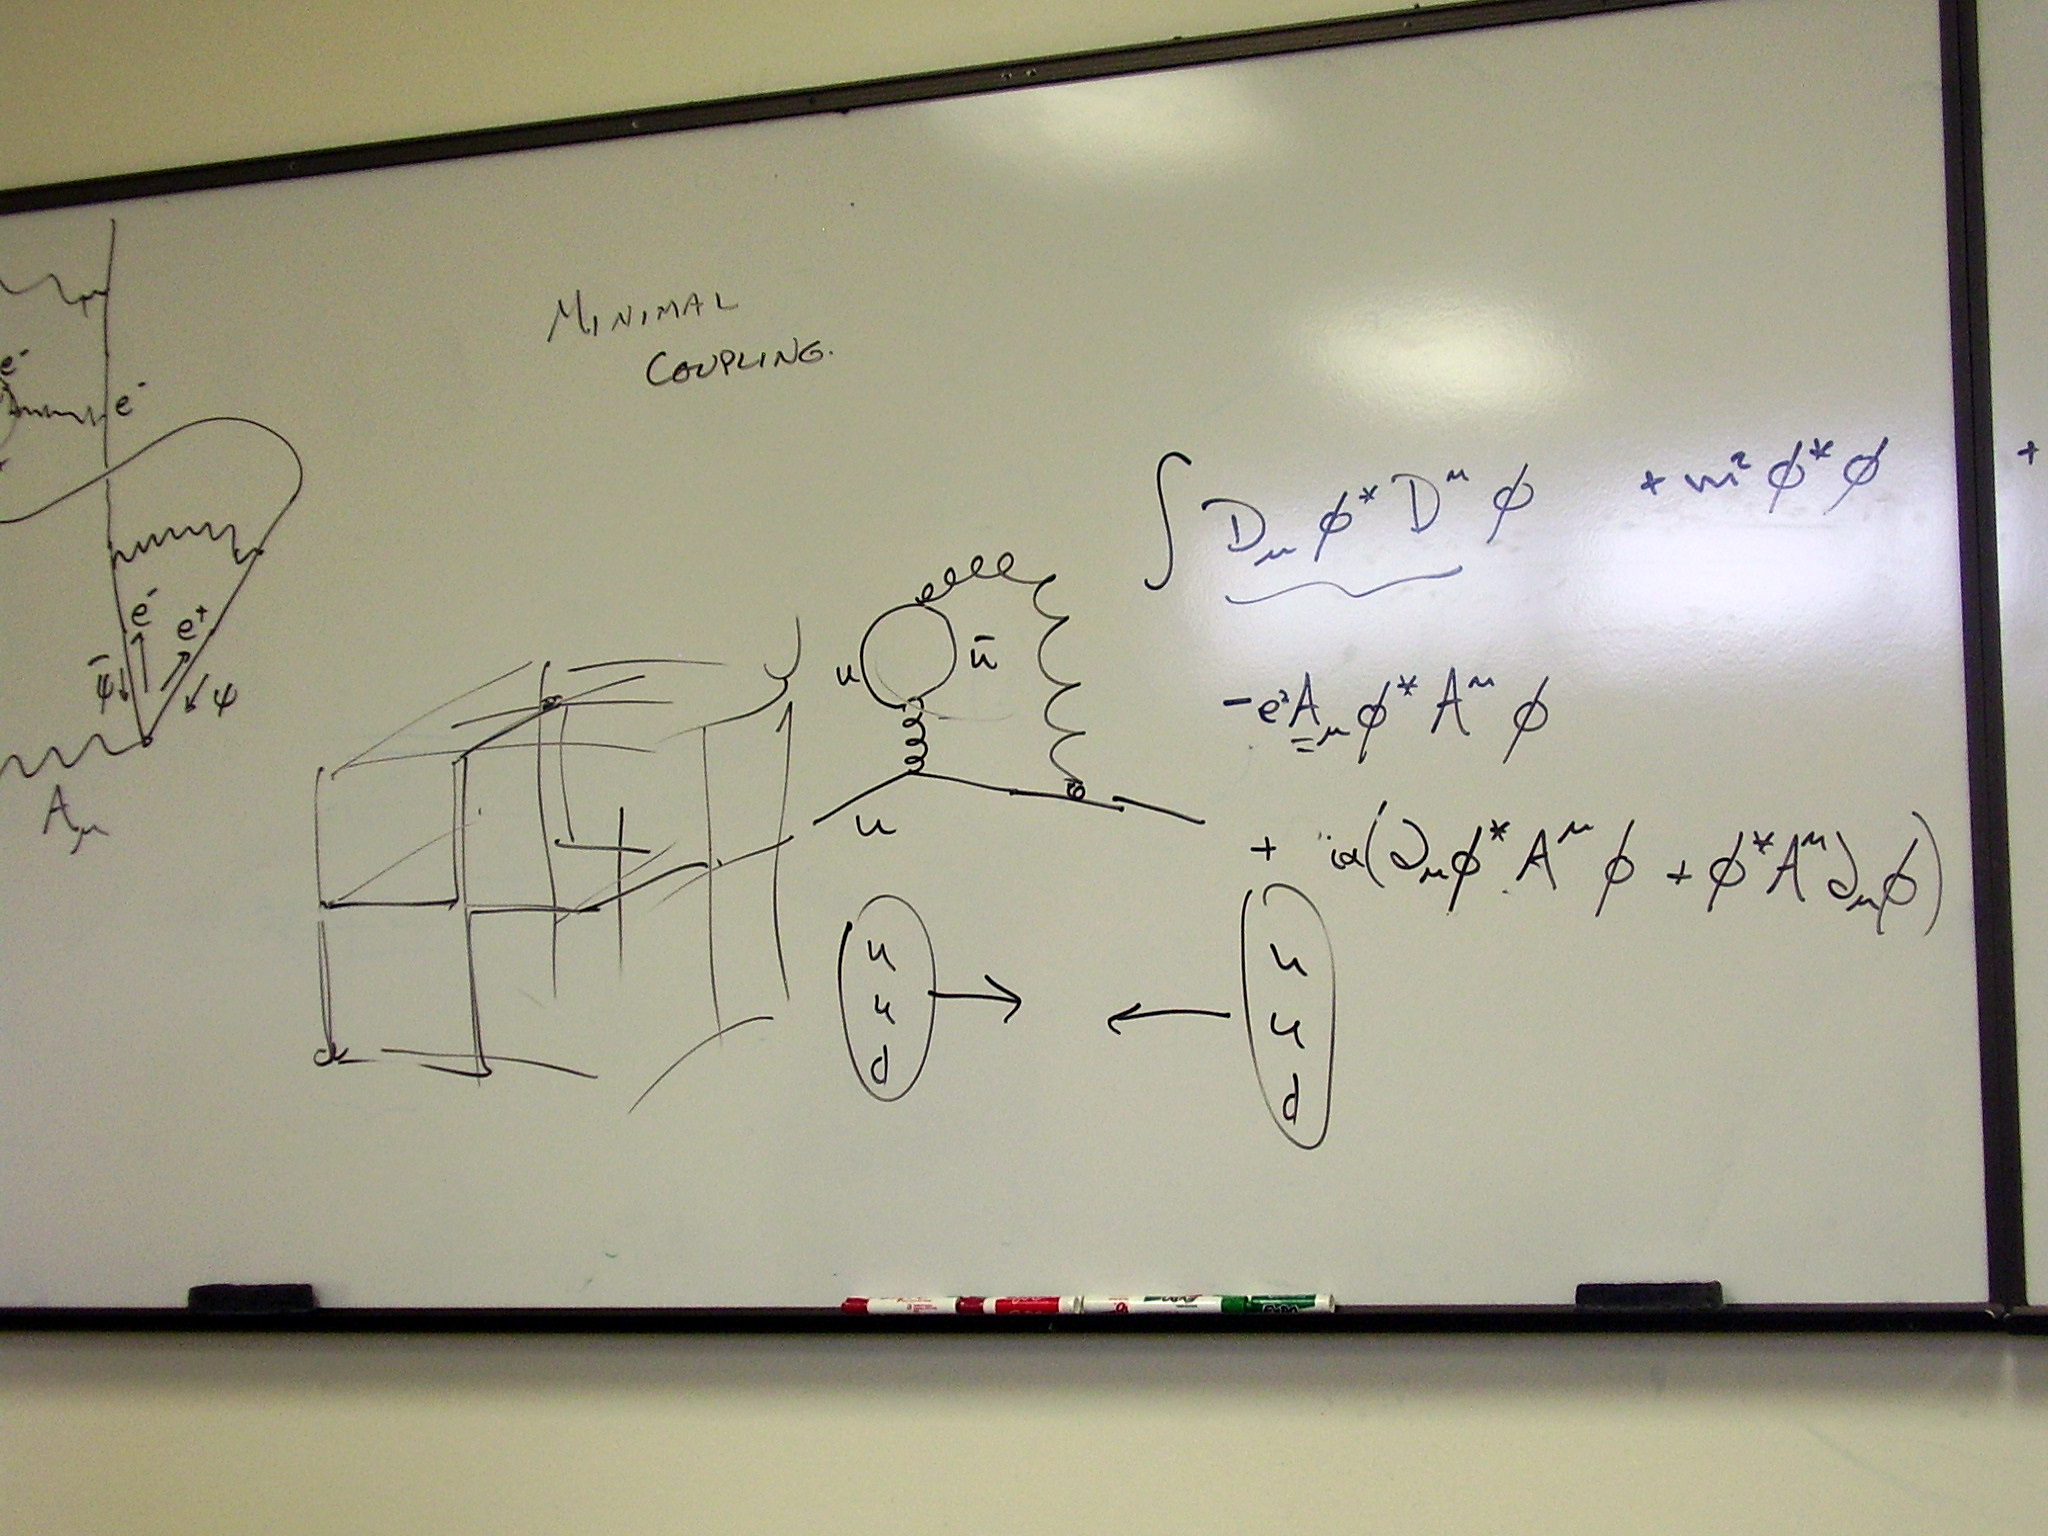 MINIMAL
COUPLING.
e⁻
e⁻
e⁻
e⁺
ψ̄
ψ
A_μ
∫ D_μ ϕ* D^μ ϕ + m² ϕ* ϕ +
-e² A_μ ϕ* A^μ ϕ
(∂_μ ϕ* A^μ ϕ + ϕ* A^μ ∂_μ ϕ)
u
ū
u
u
u
d
u
u
d